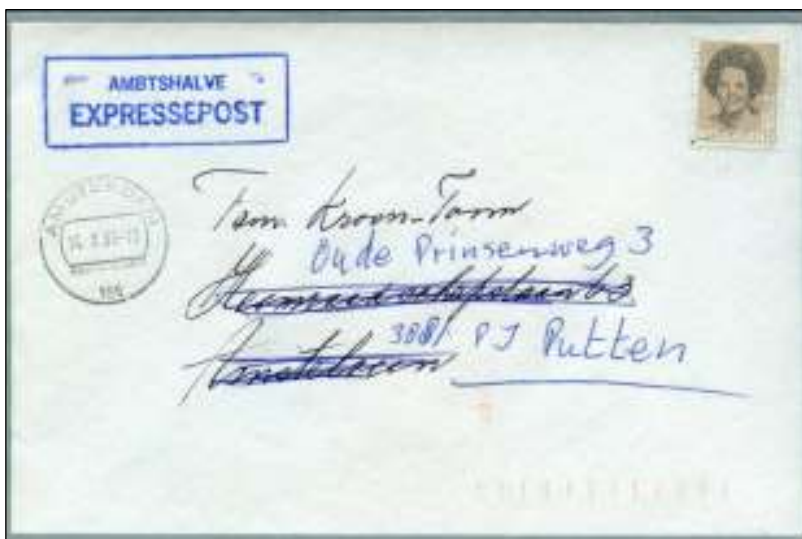 AMBTSHALVE
EXPRESSEPOST
Fam. Kroon-Toom
Oude Prinsenweg 3
Amstelveen
3881 PJ Putten